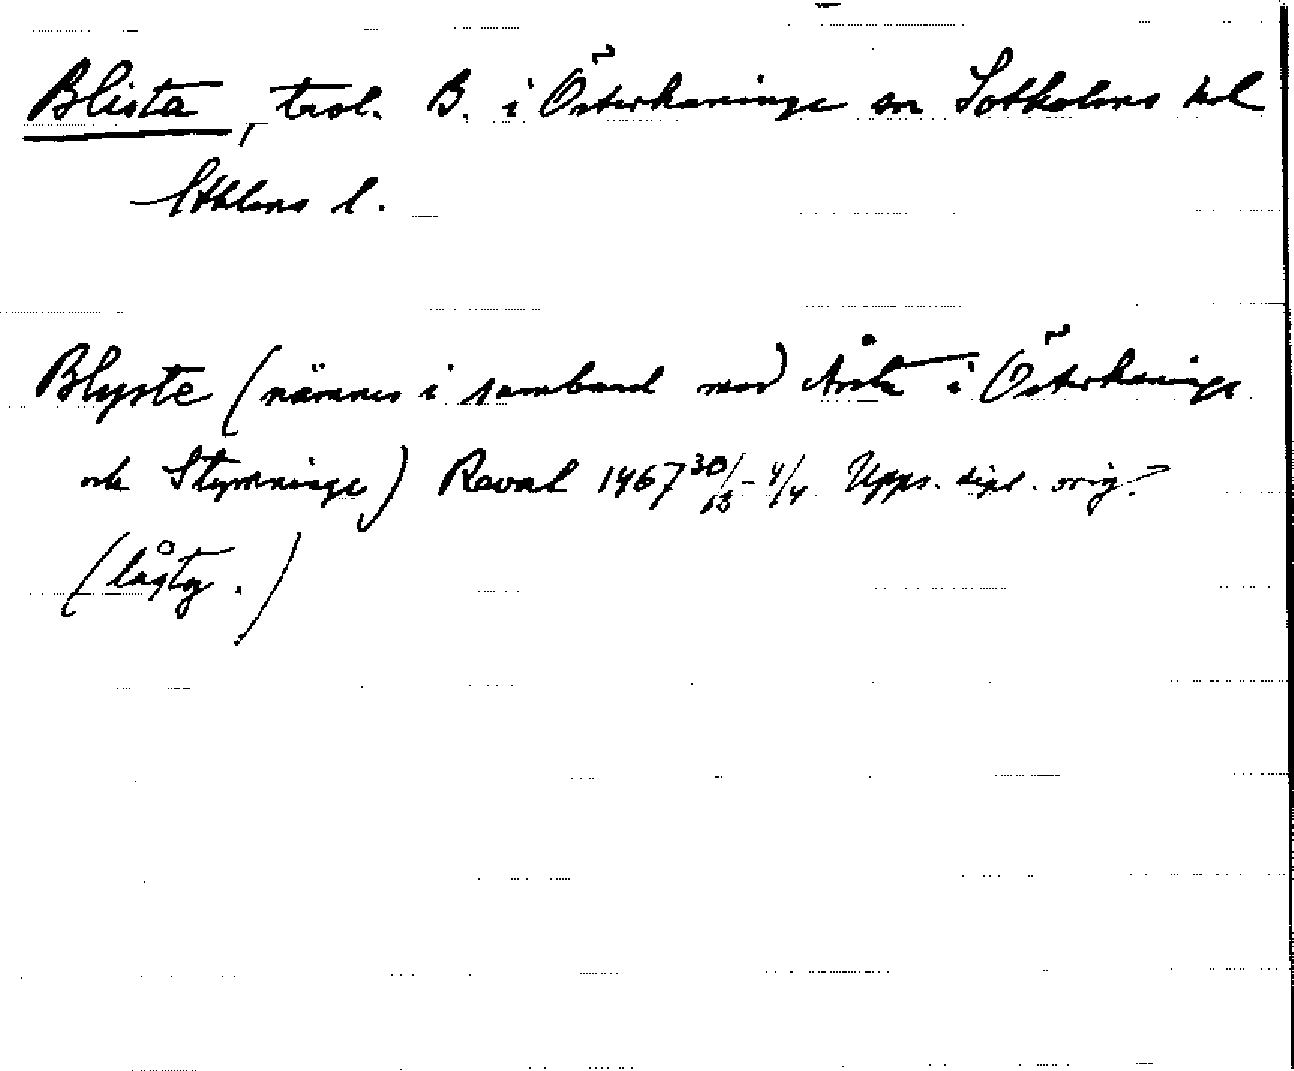 Blista, trol. B. i Österhaninge sn Sotholms hd
Sthlms l.
Blyste (nämnes i samband med Årsta i Österhaninge
och Stymninge) Reval 1467 30/13 - 4/4 Upps. dipl. orig.
(låstg.)